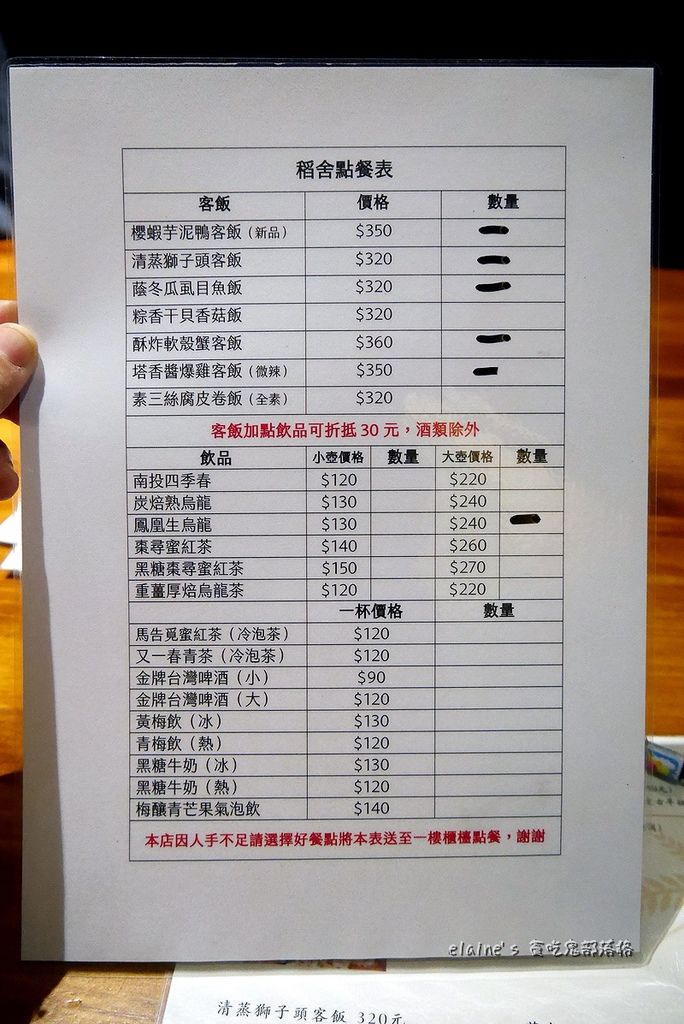 稻舍點餐表
客飯 價格 數量
櫻蝦芋泥鴨客飯（新品） $350
清蒸獅子頭客飯 $320
蔭冬瓜虱目魚飯 $320
粽香干貝香菇飯 $320
酥炸軟殼蟹客飯 $360
塔香醬爆雞客飯（微辣） $350
素三絲腐皮卷飯（全素） $320
客飯加點飲品可折抵 30 元，酒類除外
飲品 小壺價格 數量 大壺價格 數量
南投四季春 $120 $220
炭焙熟烏龍 $130 $240
鳳凰生烏龍 $130 $240
棗尋蜜紅茶 $140 $260
黑糖棗尋蜜紅茶 $150 $270
重薑厚焙烏龍茶 $120 $220
一杯價格 數量
馬告覓蜜紅茶（冷泡茶） $120
又一春青茶（冷泡茶） $120
金牌台灣啤酒（小） $90
金牌台灣啤酒（大） $120
黃梅飲（冰） $130
青梅飲（熱） $120
黑糖牛奶（冰） $130
黑糖牛奶（熱） $120
梅釀青芒果氣泡飲 $140
本店因人手不足請選擇好餐點將本表送至一樓櫃檯點餐，謝謝
elaine's 貪吃鬼部落格
清蒸獅子頭客飯 320元